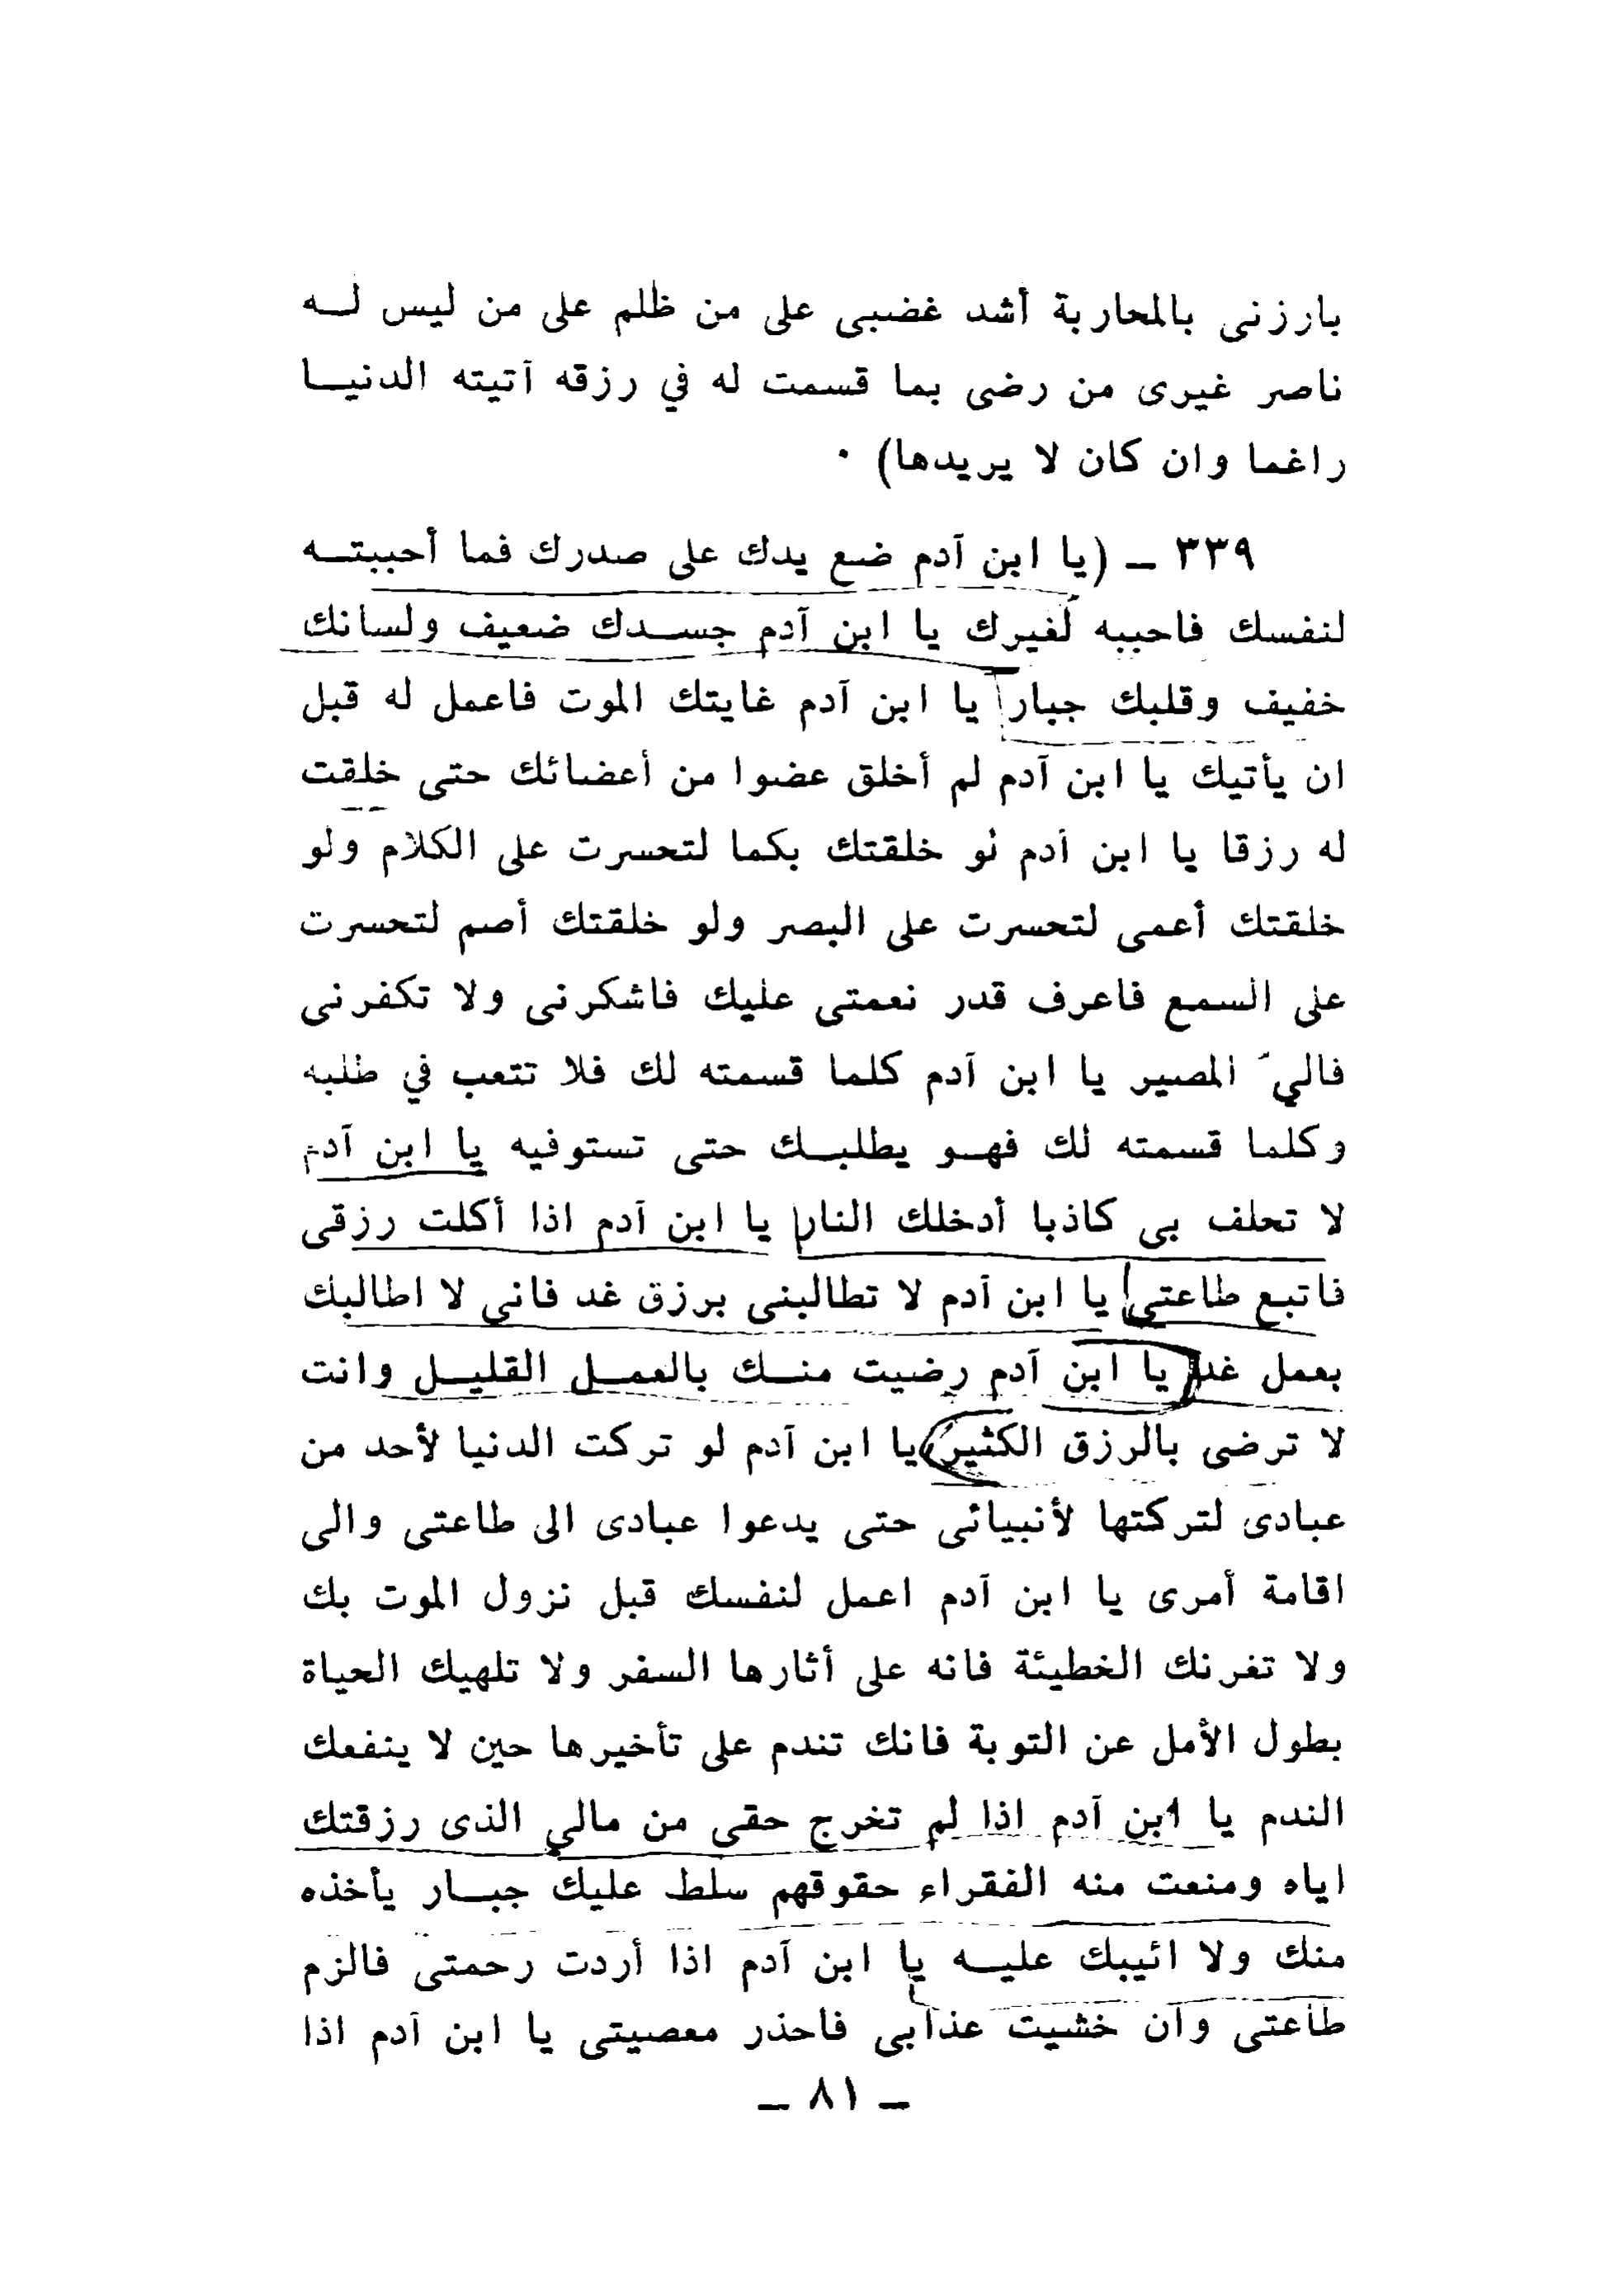 بارزنى بالمحاربة أشد غضبى على من ظلم على من ليس لـه
ناصر غيرى من رضى بما قسمت له في رزقه آتيته الدنيـا
راغما وان كان لا يريدها) ·
٣٣٩ ـ (يا ابن آدم ضع يدك على صدرك فما أحببتـه
لنفسك فاحببه لغيرك يا ابن آدم جسـدك ضعيف ولسانك
خفيف وقلبك جبار يا ابن آدم غايتك الموت فاعمل له قبل
ان يأتيك يا ابن آدم لم أخلق عضوا من أعضائك حتى خلقت
له رزقا يا ابن آدم لو خلقتك بكما لتحسرت على الكلام ولو
خلقتك أعمى لتحسرت على البصر ولو خلقتك أصم لتحسرت
على السمع فاعرف قدر نعمتى عليك فاشكرنى ولا تكفرنى
فاليَ المصير يا ابن آدم كلما قسمته لك فلا تتعب في طلبه
وكلما قسمته لك فهـو يطلبـك حتى تستوفيه يا ابن آدم
لا تحلف بى كاذبا أدخلك النار يا ابن آدم اذا أكلت رزقى
فاتبع طاعتى يا ابن آدم لا تطالبنى برزق غد فاني لا اطالبك
بعمل غد يا ابن آدم رضيت منـك بالعمـل القليـل وانت
لا ترضى بالرزق الكثير يا ابن آدم لو تركت الدنيا لأحد من
عبادى لتركتها لأنبيائى حتى يدعوا عبادى الى طاعتى والى
اقامة أمرى يا ابن آدم اعمل لنفسك قبل نزول الموت بك
ولا تغرنك الخطيئة فانه على أثارها السفر ولا تلهيك الحياة
بطول الأمل عن التوبة فانك تندم على تأخيرها حين لا ينفعك
الندم يا ابن آدم اذا لم تخرج حقى من مالي الذى رزقتك
اياه ومنعت منه الفقراء حقوقهم سلط عليك جبـار يأخذه
منك ولا اثيبك عليـه يا ابن آدم اذا أردت رحمتى فالزم
طاعتى وان خشيت عذابى فاحذر معصيتى يا ابن آدم اذا
ـ ٨١ ـ